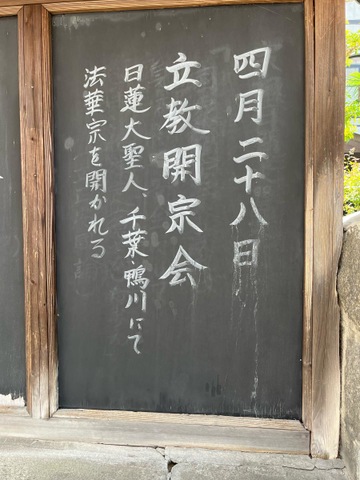 四月二十八日
立教開宗会
日蓮大聖人、千葉・鴨川にて
法華宗を開かれる